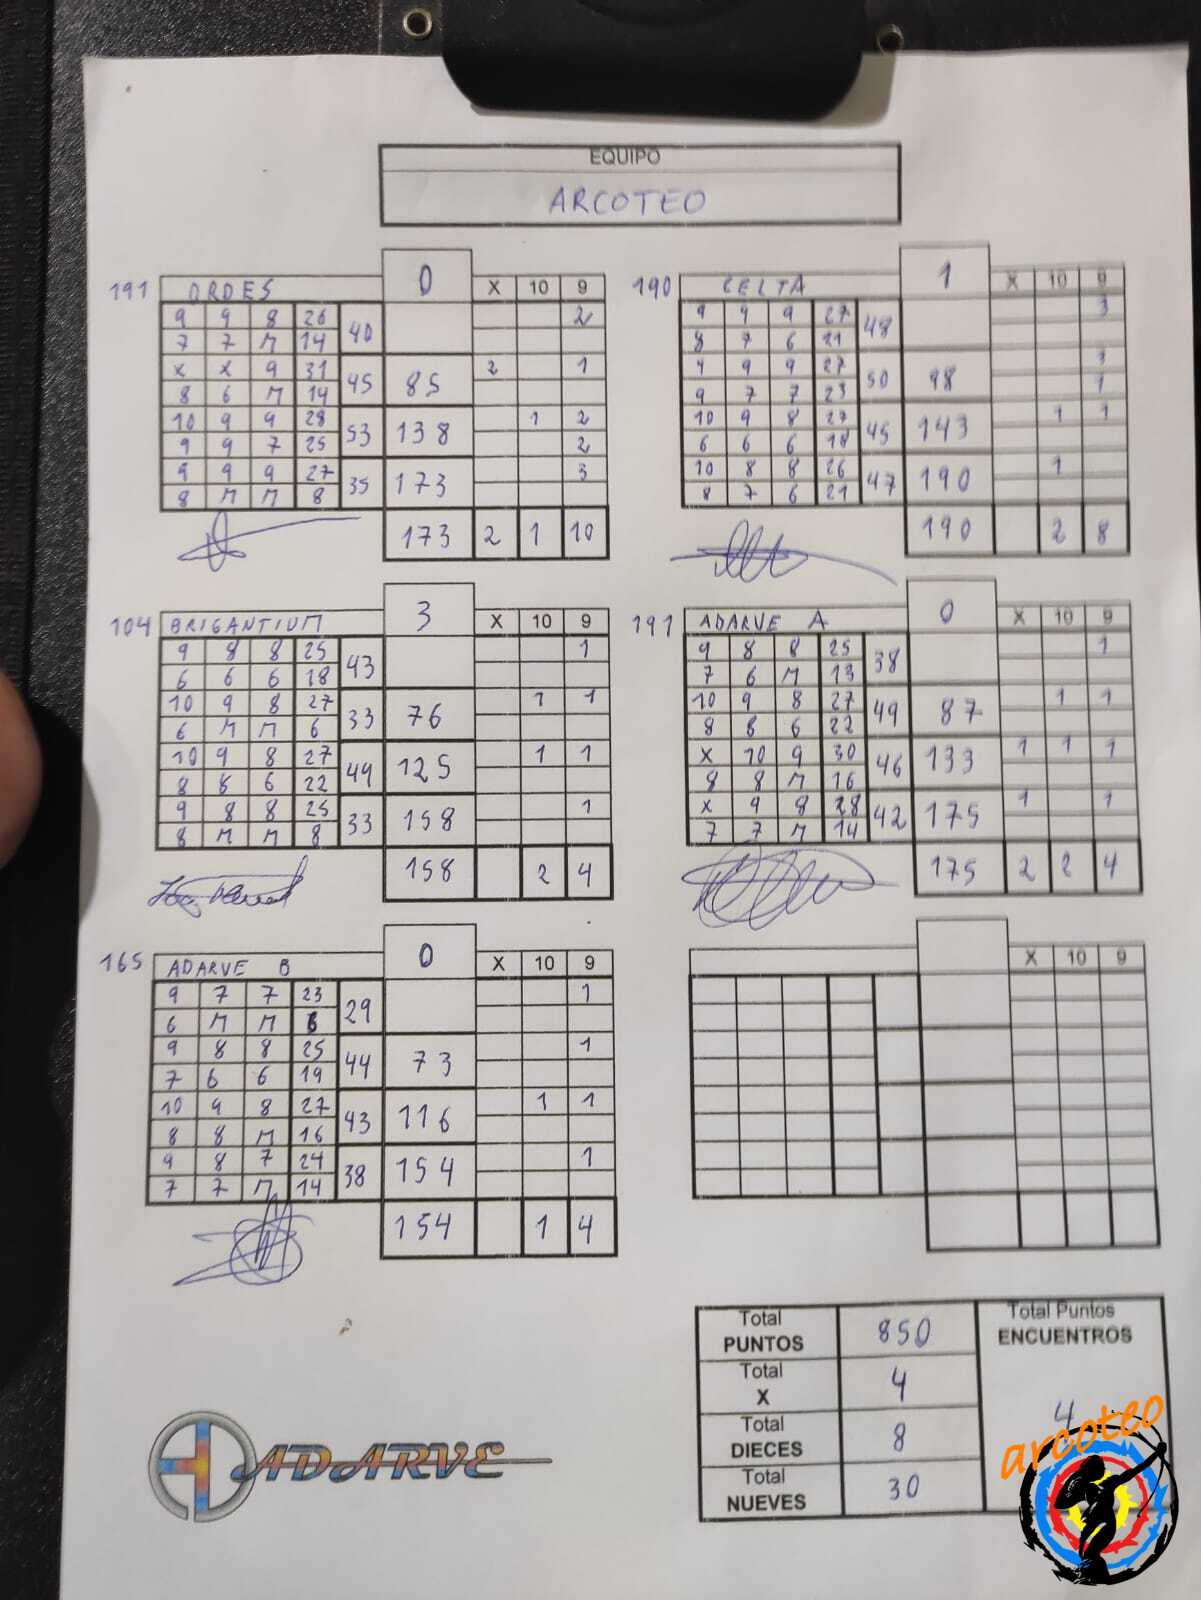 EQUIPO
ARCOTEO
191 ORDES 0 X 10 9
9 9 8 26 40 2
7 7 M 14
X X 9 31 45 85 2 1
8 6 M 14
10 9 9 28 53 138 1 2
9 9 7 25 2
9 9 9 27 35 173 3
8 M M 8
173 2 1 10
190 CELTA 1 X 10 9
9 9 9 27 48 3
8 7 6 21
9 9 9 27 50 98 3
9 7 7 23 1
10 9 8 27 45 143 1 1
6 6 6 18
10 8 8 26 47 190 1
8 7 6 21
190 2 8
104 BRIGANTIUM 3 X 10 9
9 8 8 25 43 1
6 6 6 18
10 9 8 27 33 76 1 1
6 M M 6
10 9 8 27 49 125 1 1
8 8 6 22
9 8 8 25 33 158 1
8 M M 8
158 2 4
191 ADARVE A 0 X 10 9
9 8 8 25 38 1
7 6 M 13
10 9 8 27 49 87 1 1
8 8 6 22
X 10 9 30 46 133 1 1 1
8 8 M 16
X 9 8 28 42 175 1 1
7 7 M 14
175 2 2 4
165 ADARVE B 0 X 10 9
9 7 7 23 29 1
6 M M 6
9 8 8 25 44 73 1
7 6 6 19
10 9 8 27 43 116 1 1
8 8 M 16
9 8 7 24 38 154 1
7 7 M 14
154 1 4
X 10 9
Total PUNTOS 850
Total X 4
Total DIECES 8
Total NUEVES 30
Total Puntos
ENCUENTROS
4
ADARVE
arcoteo